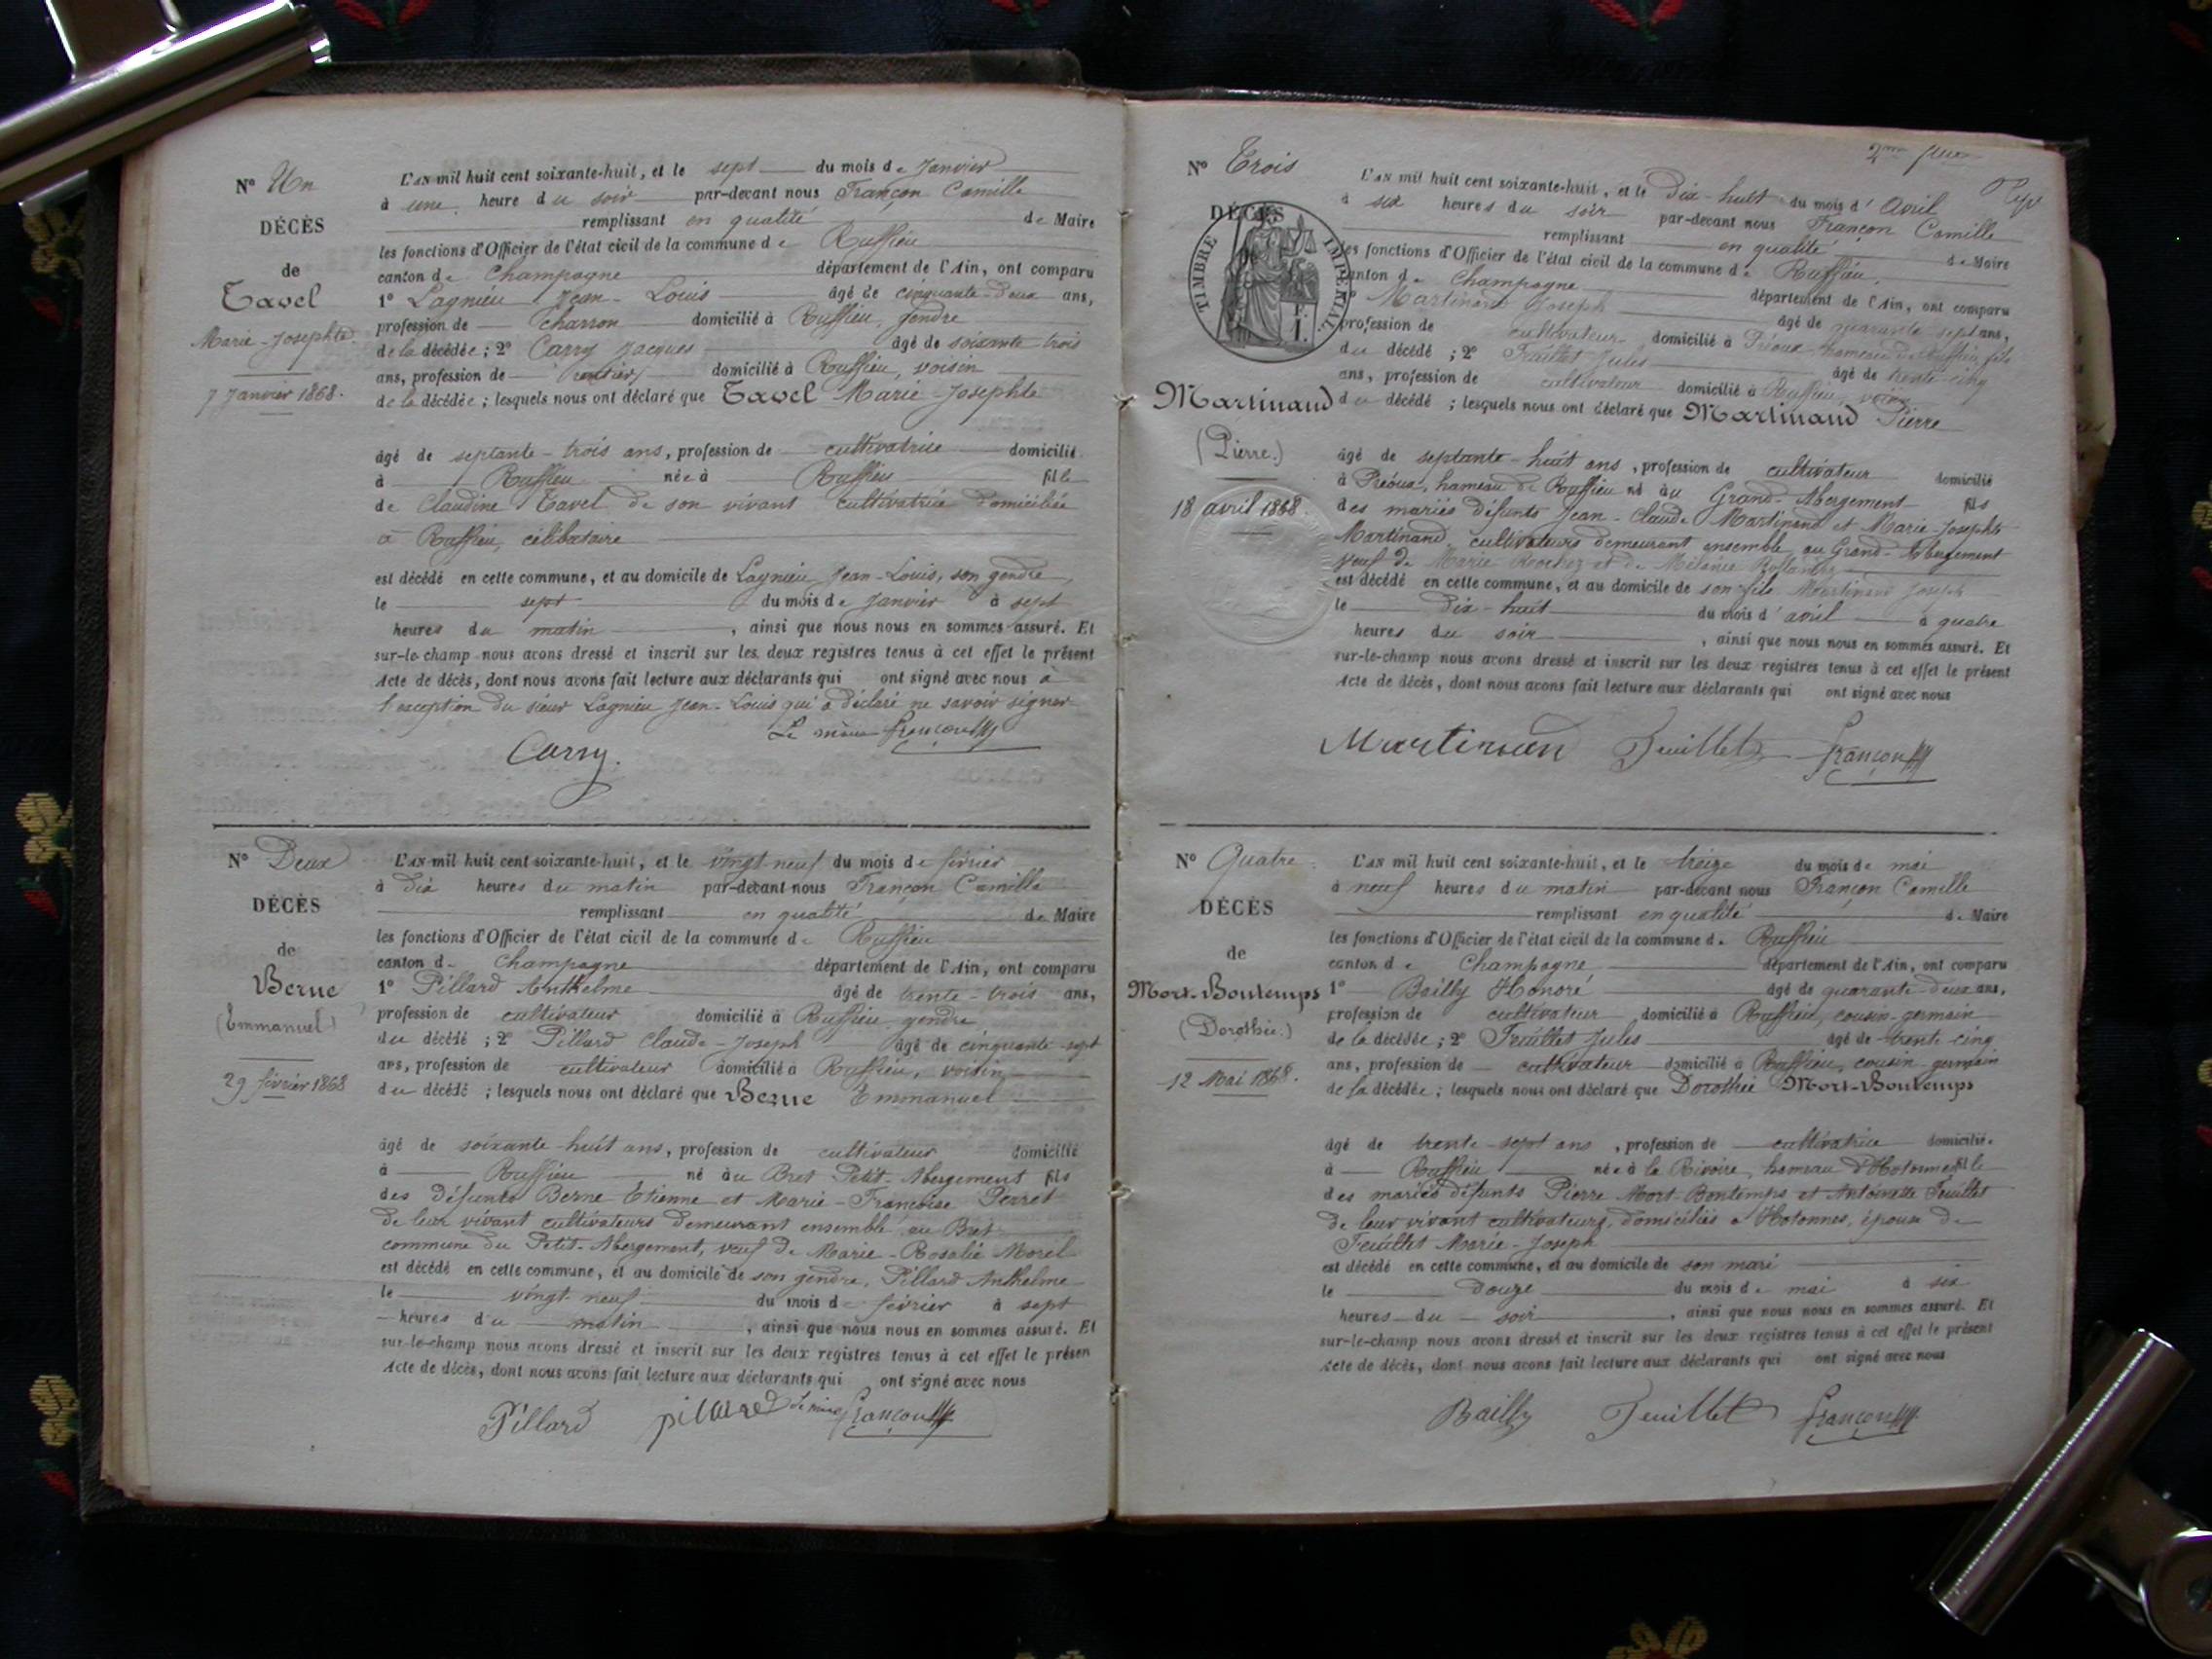 N° Un
DÉCÈS
de
Tavel
Marie-Josephte
7 Janvier 1868.
L'AN mil huit cent soixante-huit, et le sept du mois de Janvier
à une heure du soir par-devant nous Françon Camille
remplissant en qualité de Maire
les fonctions d'Officier de l'état civil de la commune de Ruffieu
canton de Champagne département de l'Ain, ont comparu
1° Lagnieu Jean-Louis âgé de cinquante-deux ans,
profession de charron domicilié à Ruffieu, gendre
de la décédée ; 2° Carry Jacques âgé de soixante trois
ans, profession de rentier domicilié à Ruffieu, voisin
de la décédée ; lesquels nous ont déclaré que Tavel Marie-Josephte
âgé de septante-trois ans, profession de cultivatrice domicilié
à Ruffieu née à Ruffieu fille
de Claudine Tavel de son vivant cultivatrice domiciliée
à Ruffieu, célibataire
est décédé en cette commune, et au domicile de Lagnieu Jean-Louis, son gendre,
le sept du mois de Janvier à sept
heures du matin, ainsi que nous nous en sommes assuré. Et
sur-le-champ nous avons dressé et inscrit sur les deux registres tenus à cet effet le présent
Acte de décès, dont nous avons fait lecture aux déclarants qui ont signé avec nous à
l'exception du sieur Lagnieu Jean-Louis qui a déclaré ne savoir signer
Le maire Françon
Carry.
N° Deux
DÉCÈS
de
Berne
(Emmanuel)
29 février 1868
L'AN mil huit cent soixante-huit, et le vingt neuf du mois de février
à dix heures du matin par-devant nous Françon Camille
remplissant en qualité de Maire
les fonctions d'Officier de l'état civil de la commune de Ruffieu
canton de Champagne département de l'Ain, ont comparu
1° Pillard Anthelme âgé de trente-trois ans,
profession de cultivateur domicilié à Ruffieu, gendre
du décédé ; 2° Pillard Claude-Joseph âgé de cinquante-sept
ans, profession de cultivateur domicilié à Ruffieu, voisin
du décédé ; lesquels nous ont déclaré que Berne Emmanuel
âgé de soixante-huit ans, profession de cultivateur domicilié
à Ruffieu né au Bret Petit-Abergement fils
des défunts Berne Etienne et Marie-Françoise Perret
de leur vivant cultivateurs demeurant ensemble au Bret
commune du Petit-Abergement, veuf de Marie-Rosalie Morel
est décédé en cette commune, et au domicile de son gendre, Pillard Anthelme
le vingt-neuf du mois de février à sept
heures du matin, ainsi que nous nous en sommes assuré. Et
sur-le-champ nous avons dressé et inscrit sur les deux registres tenus à cet effet le présen
Acte de décès, dont nous avons fait lecture aux déclarants qui ont signé avec nous
Pillard pillard Le maire Françon
2me
N° Trois
DÉCÈS
TIMBRE IMPÉRIAL
Martinand
(Pierre.)
18 avril 1868.
L'AN mil huit cent soixante-huit, et le dix-huit du mois d'Avril
à six heures du soir par-devant nous Françon Camille
remplissant en qualité de Maire
les fonctions d'Officier de l'état civil de la commune de Ruffieu
canton de Champagne département de l'Ain, ont comparu
Martinand Joseph âgé de quarante sept ans,
profession de cultivateur domicilié à Préoux hameau de Ruffieu, fils
du décédé ; 2° Feuillet Jules âgé de trente-cinq
ans, profession de cultivateur domicilié à Ruffieu, voisin
du décédé ; lesquels nous ont déclaré que Martinand Pierre
âgé de septante-huit ans, profession de cultivateur domicilié
à Préoux, hameau de Ruffieu né au Grand-Abergement fils
des mariés défunts Jean-Claude Martinand et Marie-Josephte
Martinand, cultivateurs demeurant ensemble au Grand-Abergement
veuf de Marie et de Mélanie
est décédé en cette commune, et au domicile de son fils Martinand Joseph
le dix-huit du mois d'avril à quatre
heures du soir, ainsi que nous nous en sommes assuré. Et
sur-le-champ nous avons dressé et inscrit sur les deux registres tenus à cet effet le présent
Acte de décès, dont nous avons fait lecture aux déclarants qui ont signé avec nous
Martinand Feuillet Françon
N° Quatre
DÉCÈS
de
Mort-Bontemps
(Dorothée.)
12 Mai 1868.
L'AN mil huit cent soixante-huit, et le treize du mois de mai
à neuf heures du matin par-devant nous Françon Camille
remplissant en qualité de Maire
les fonctions d'Officier de l'état civil de la commune de Ruffieu
canton de Champagne département de l'Ain, ont comparu
1° Bailly Honoré âgé de quarante-deux ans,
profession de cultivateur domicilié à Ruffieu, cousin-germain
de la décédée ; 2° Feuillet Jules âgé de trente-cinq
ans, profession de cultivateur domicilié à Ruffieu, cousin-germain
de la décédée ; lesquels nous ont déclaré que Dorothée Mort-Bontemps
âgé de trente-sept ans, profession de cultivatrice domicilié
à Ruffieu née à la Rivoire, hameau d'Hotonnes fille
des mariés défunts Pierre Mort-Bontemps et Antoinette Feuillet
de leur vivant cultivateurs, domiciliés à Hotonnes, épouse de
Feuillet Marie-Joseph
est décédé en cette commune, et au domicile de son mari
le douze du mois de mai à six
heures du soir, ainsi que nous nous en sommes assuré. Et
sur-le-champ nous avons dressé et inscrit sur les deux registres tenus à cet effet le présent
Acte de décès, dont nous avons fait lecture aux déclarants qui ont signé avec nous
Bailly Feuillet Françon